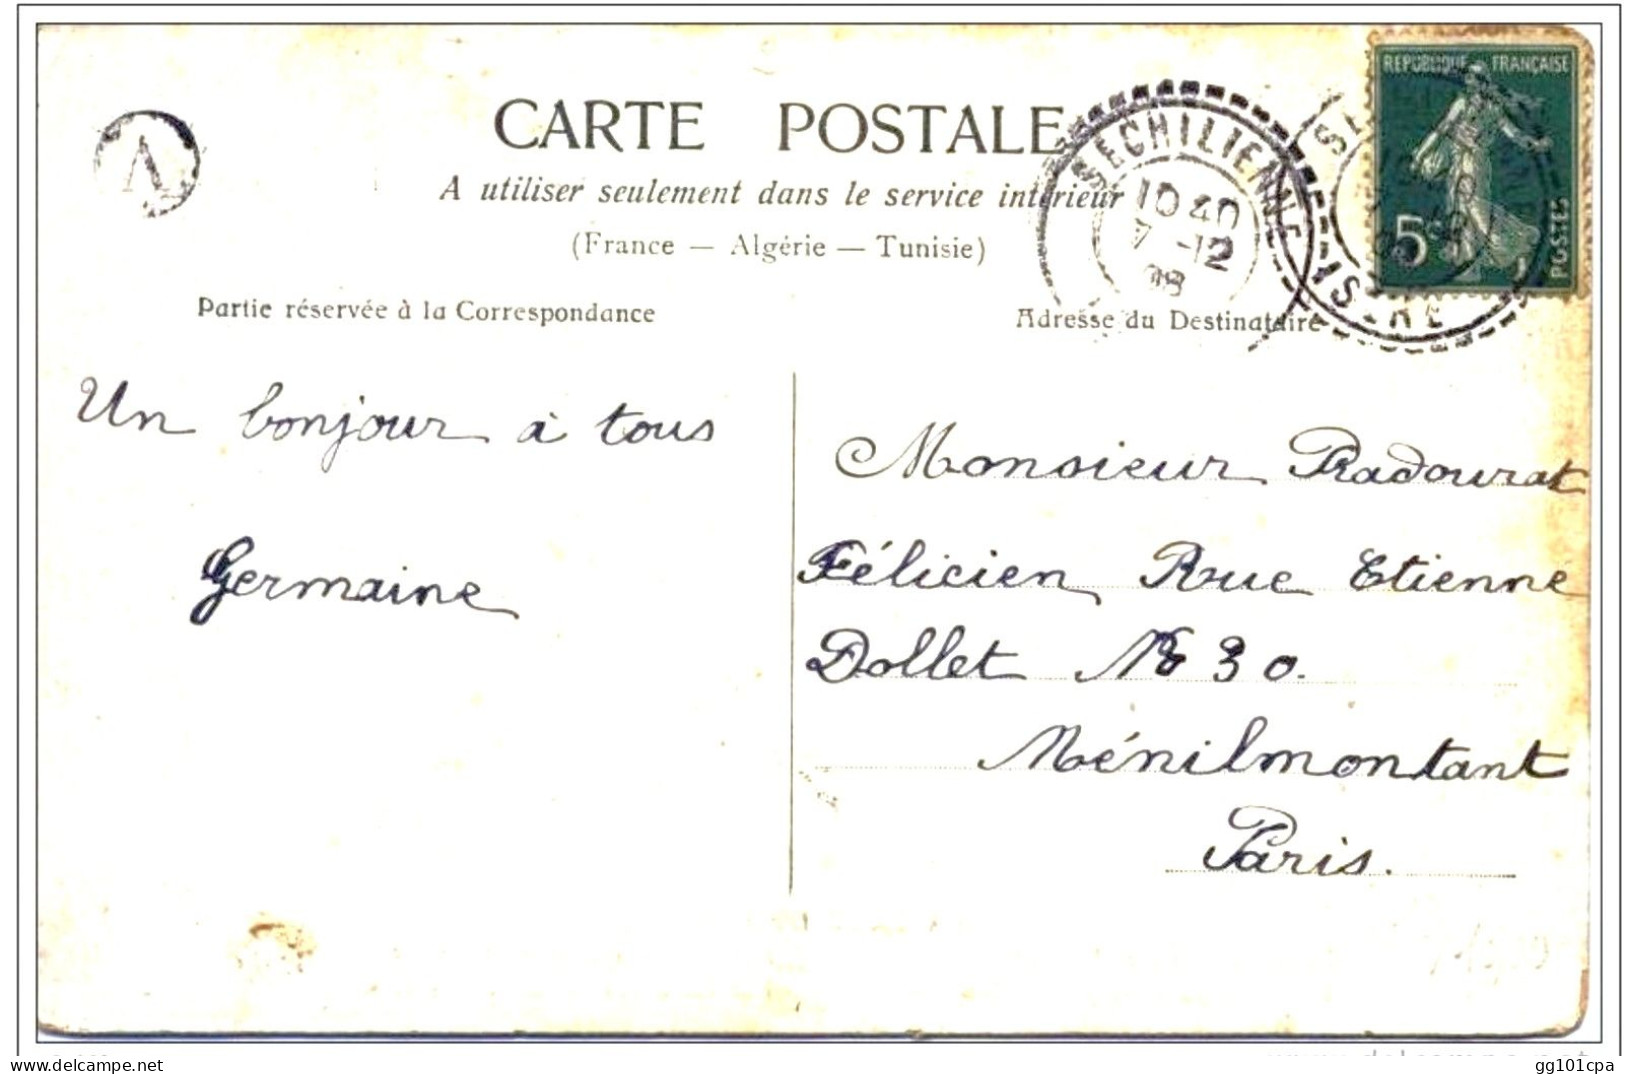 V
CARTE POSTALE
A utiliser seulement dans le service intérieur
(France — Algérie — Tunisie)
SECHILIENNE
10 40
7 -12
08
ISERE
REPUBLIQUE FRANÇAISE
5c
POSTES
Partie réservée à la Correspondance
Adresse du Destinataire
Un bonjour à tous
Germaine
Monsieur Radourat
Félicien Rue Etienne
Dollet No 30.
Ménilmontant
Paris.
gg101cpa